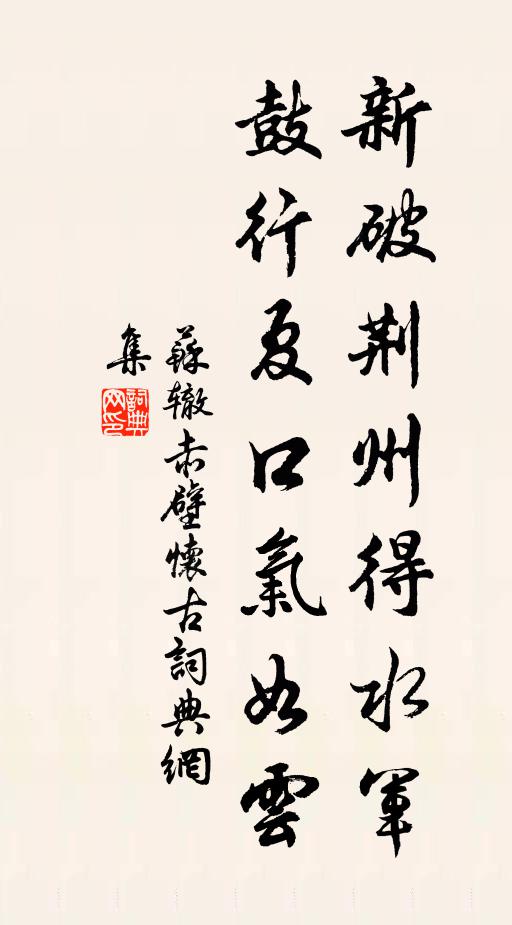 新破荆州得水軍
鼓行夏口氣如雲
蘇辙赤壁懷古詞典網
集
詞典
网印